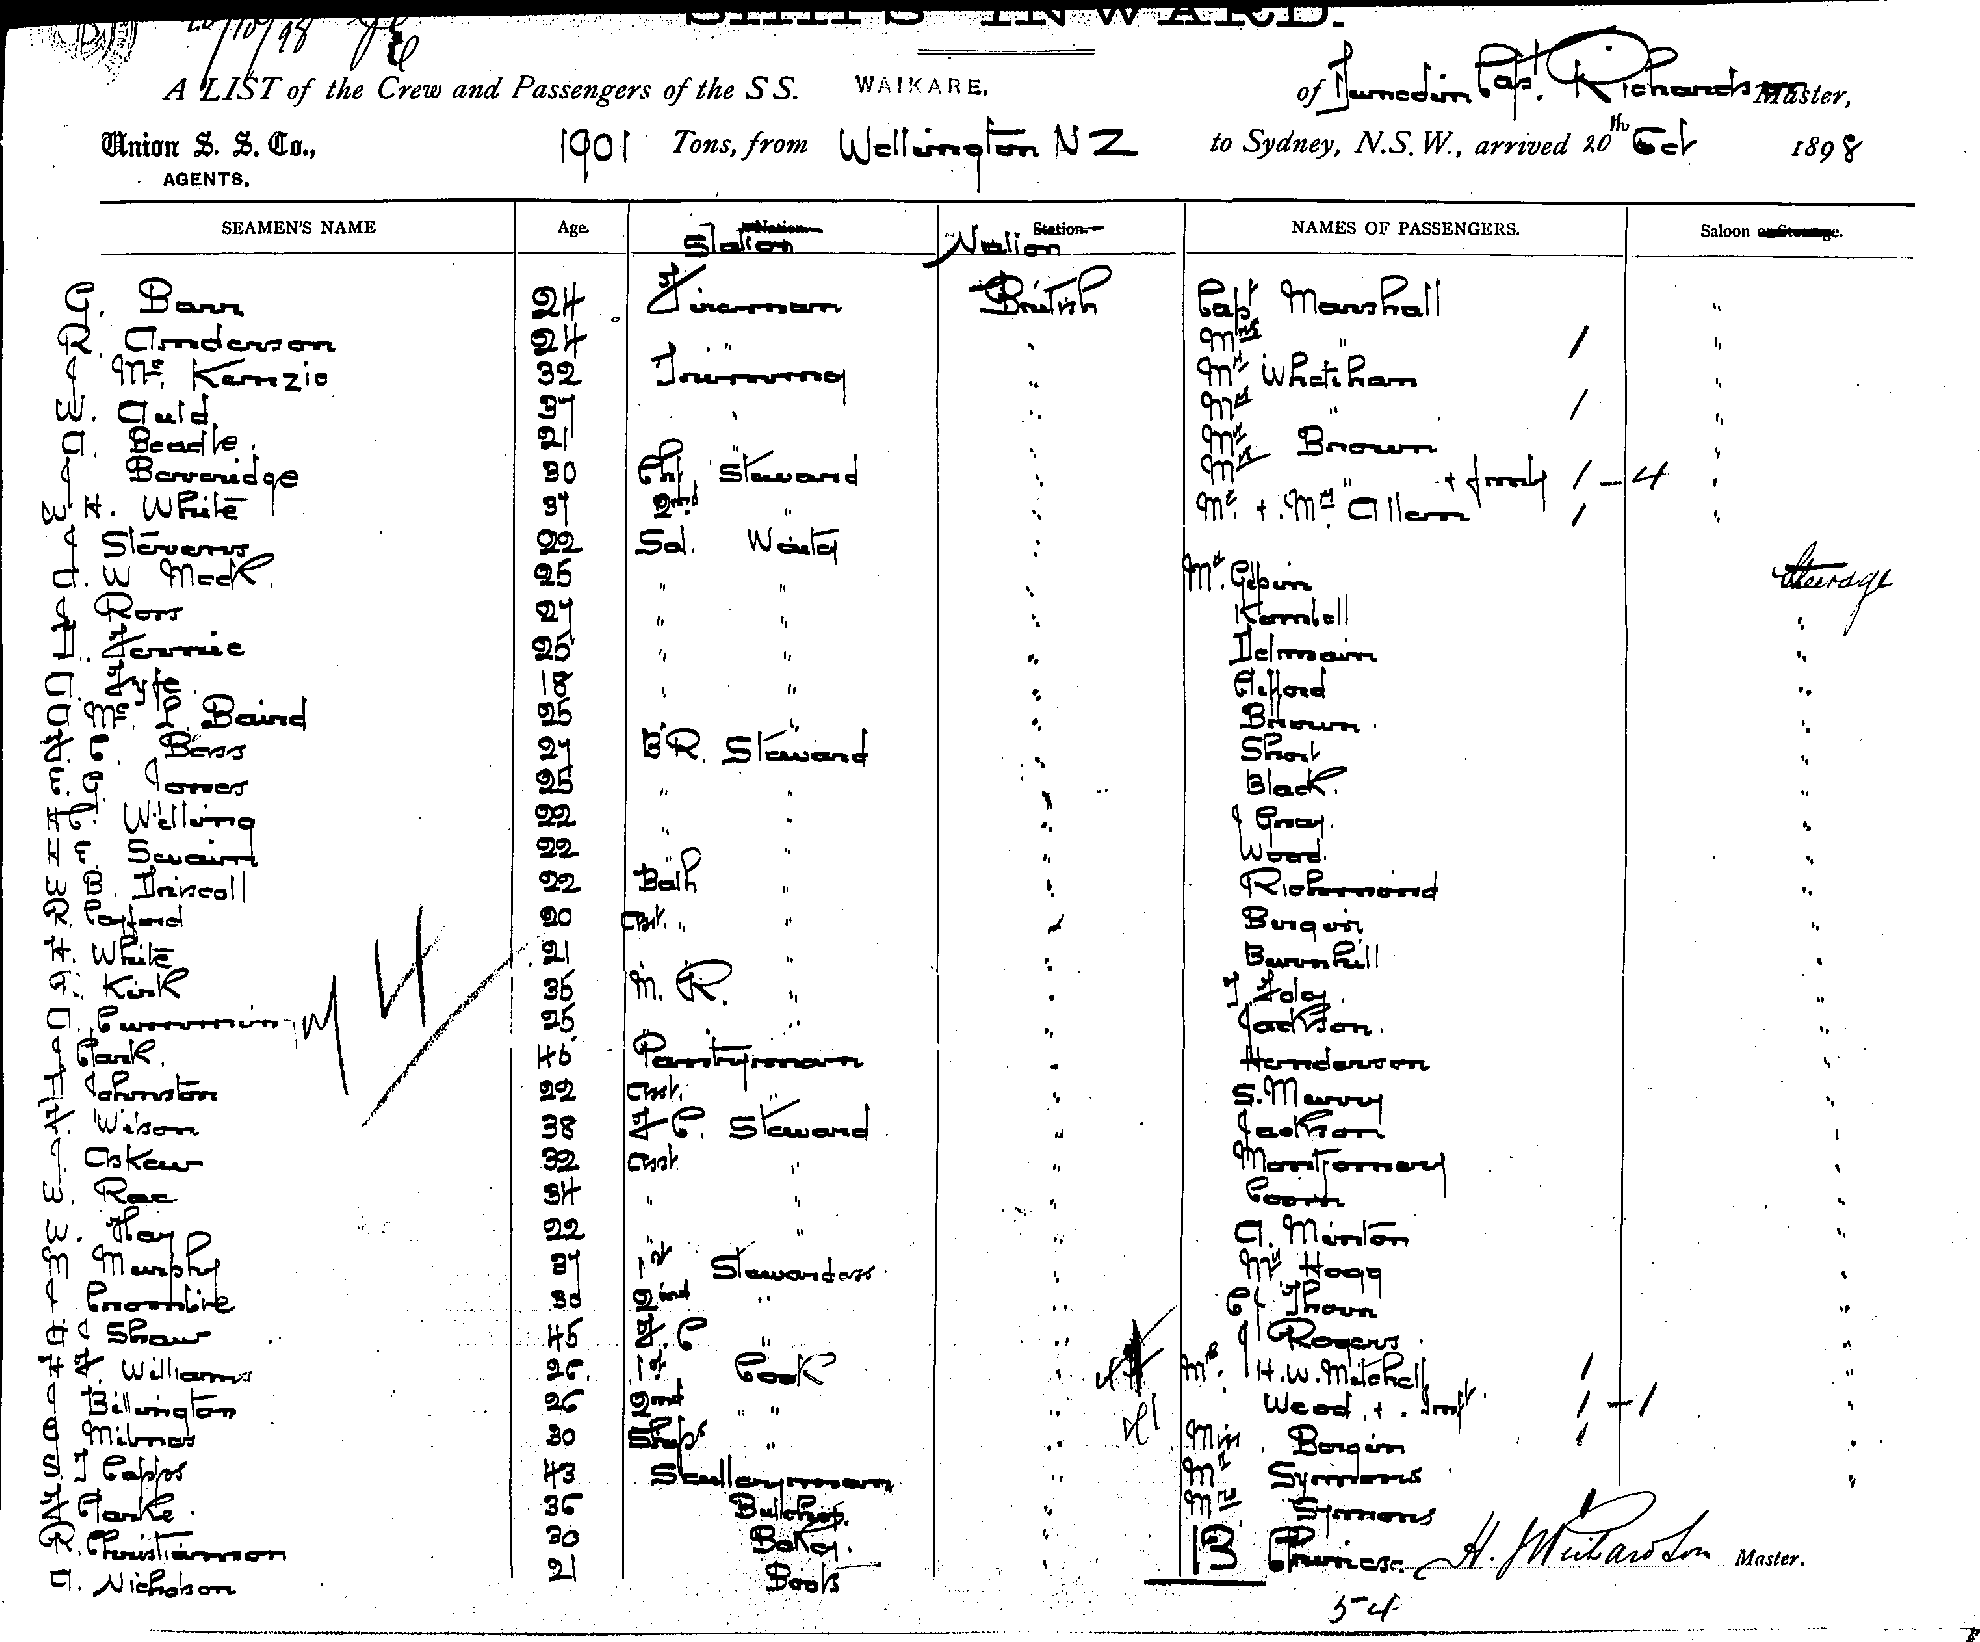 SHIPS INWARD.
20/10/98
A LIST of the Crew and Passengers of the S S. WAIKARE, of Dunedin Capt. Richardson Master,
Union S. S. Co., 1901 Tons, from Wellington N Z to Sydney, N.S.W., arrived 20th Oct 1898
AGENTS,
SEAMEN'S NAME Age Nation Station Station Nation NAMES OF PASSENGERS. Saloon or Steerage.
G. Barr 24 Fireman British Capt Marshall "
R. Anderson 24 " " Mrs " 1 "
J McKenzie 32 Trimmer " Mr Whitcham "
W. Auld 37 " " Mrs " 1 "
A. Beadle 21 " Mr Brown "
J Berveridge 30 Chf Steward " Mrs " + family 1 - 4 "
W H. White 37 2nd " " Mr. + Mrs Allen 1 "
J Stevens 22 Sal. Waiter "
A. W Mack 25 " " " Mr. Gibson Steerage
J Ross 27 " " " Kembell "
H. Fennie 25 " " " Delmain "
A. Fyfe 18 " " " Clifford "
A Mc P Baird 25 " " Brown "
F C. Bess 27 B R. Steward " Short "
E. G. Jones 25 " " " Black "
H C. Welling 22 " " " J Gray "
H E. Swain 22 " " Wood "
W B. Driscoll 22 Bath " " Richmond "
R. Cayford 20 Asst. " " " Burgoin "
H. White 21 " " Barnhill "
G. Kirk 35 M. R. " " T Foley "
A. Cumming 25 " " Jackson "
J Clark 45 Pantryman " Henderson "
H Johnston 22 Asst. " " S. Murray "
F. Wilson 38 F C. Steward " Jackson "
J. Askew 32 Asst " " Montgomery "
W. Rae 34 " " " Coorn "
W. Hay 22 " " A. Minton "
M Murphy 37 1st Stewardess " Mrs Hogg "
J Crombie 30 2nd " " C Thorn "
A J Shaw 45 F. C " " J Rogers "
H F. Williams 26 1st Cook " 44 Mr. H. W. Mitchell 1 "
J Billington 26 2nd " " " 41 Wood + Inft 1 - 1 "
G Milnes 30 Ships " " Miss Bergin 1 "
S. J Capps 43 Sculleryman " Mr Symmons "
F Clarke 36 Butcher " Mrs Symons 1
R. Christianson 30 Baker. " 13 Chinese H. J Richardson Master.
A. Nicholson 21 Boots "
74
54